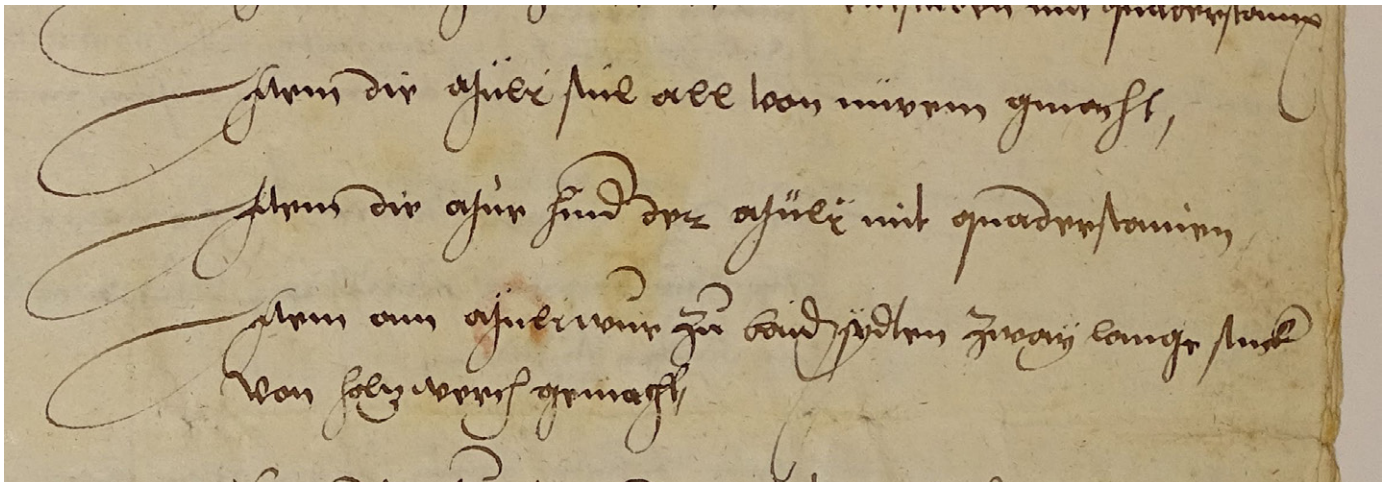 mit quaderstainen
Item die Müli stül all von nüwem gmacht,
Item die Mür hind der Müli mit quaderstainen
Item ain Müliwur zu baid sydten zway lange stuck
von holtzwerch gemacht